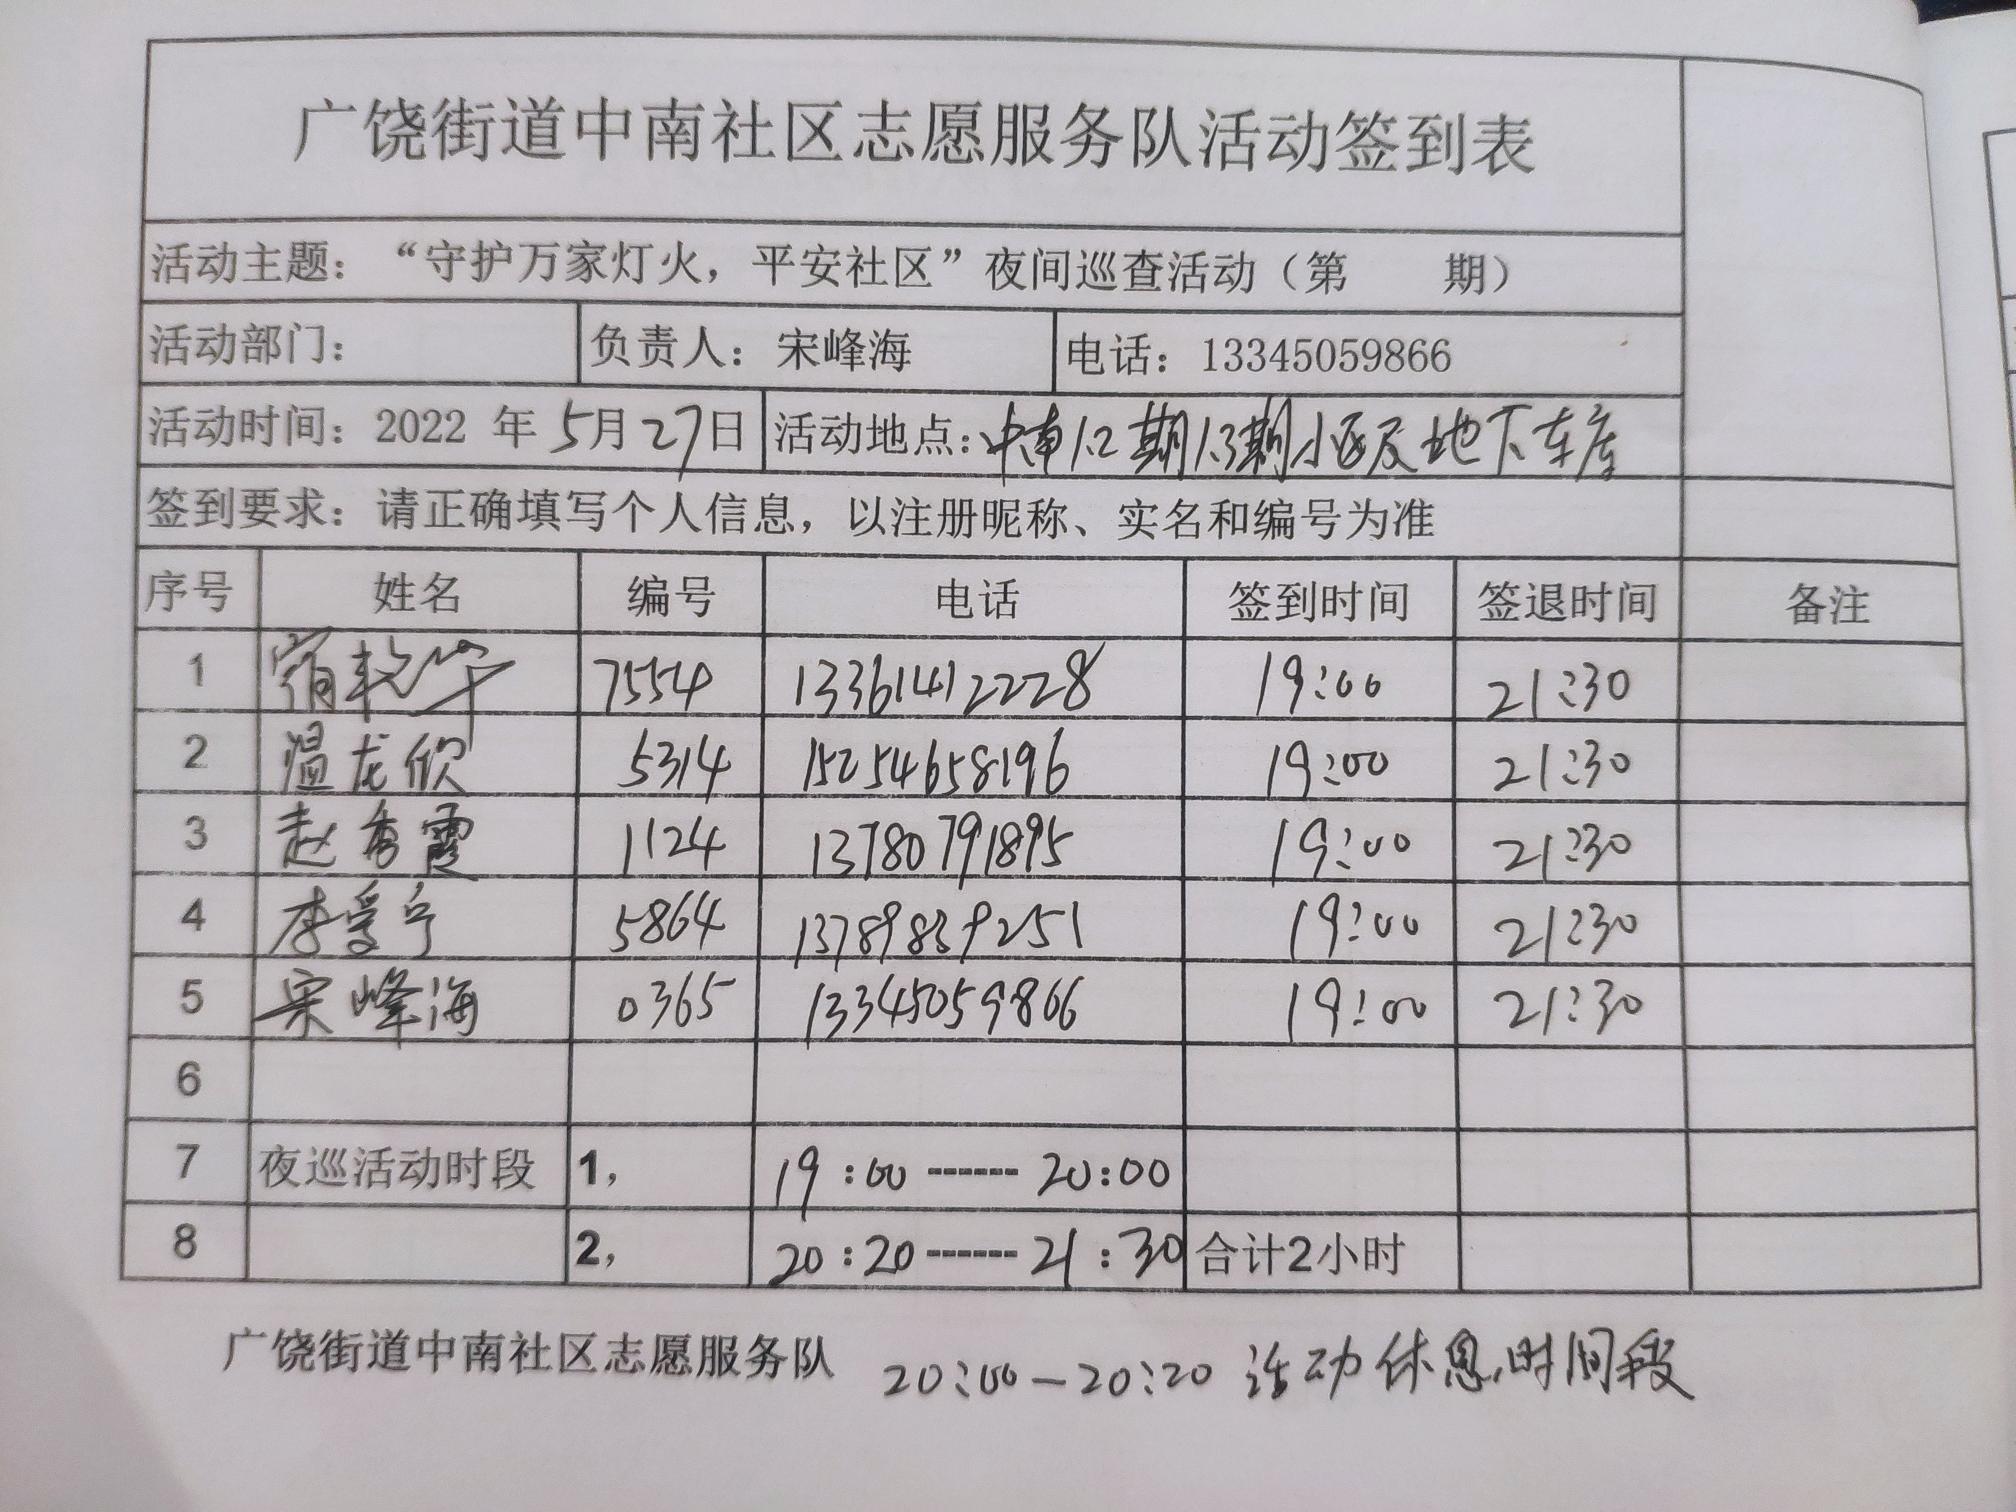 广饶街道中南社区志愿服务队活动签到表
活动主题：“守护万家灯火，平安社区”夜间巡查活动（第 期）
活动部门： 负责人：宋峰海 电话：13345059866
活动时间：2022 年 5月27日 活动地点：中南1.2期1.3期小区及地下车库
签到要求：请正确填写个人信息，以注册昵称、实名和编号为准
序号 姓名 编号 电话 签到时间 签退时间 备注
1 7554 13361412228 19:00 21:30
2 温龙欣 5314 15254658196 19:00 21:30
3 赵秀霞 1124 13780791895 19:00 21:30
4 李爱宁 5864 13789839251 19:00 21:30
5 宋峰海 0365 13345059866 19:00 21:30
6
7 夜巡活动时段 1， 19:00------20:00
8 2， 20:20------21:30 合计2小时
广饶街道中南社区志愿服务队 20:00-20:20 活动休息时间段